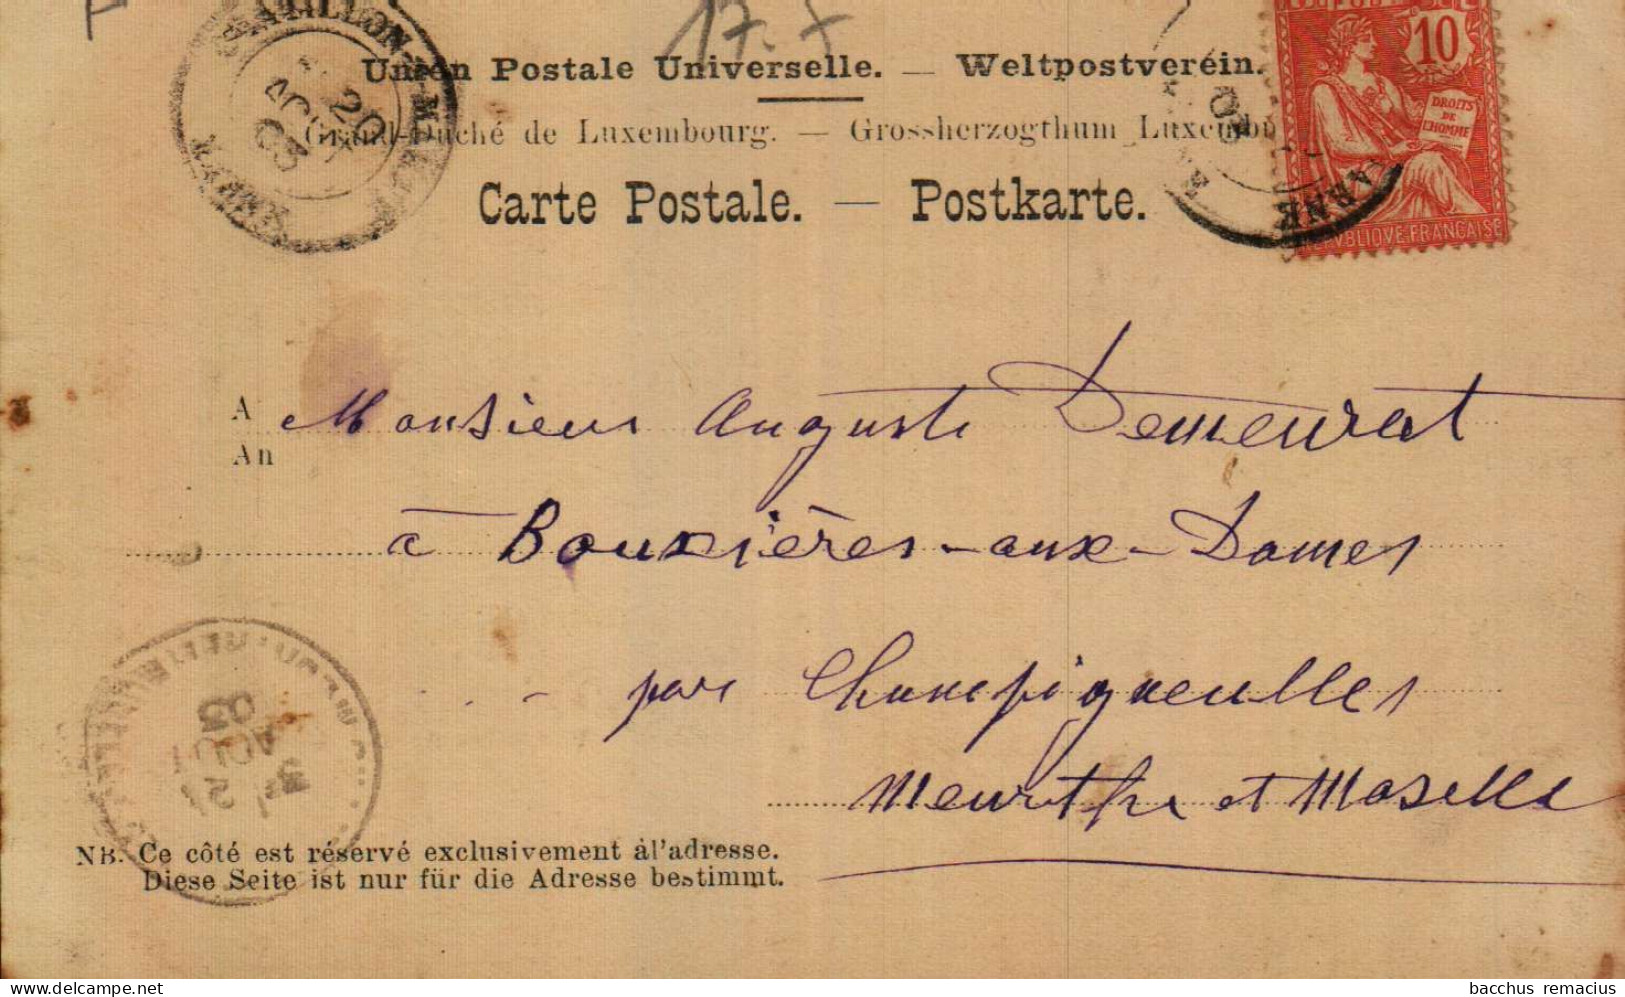 17.7
Union Postale Universelle. — Weltpostverein.
10
DROITS DE L'HOMME
Grand-Duché de Luxembourg. — Grossherzogthum Luxembu
Carte Postale. — Postkarte.
REPVBLIQVE FRANÇAISE
20
AOUT
03
MARNE
03
A Monsieur Auguste Demeurat
An
à Bouxières-aux-Dames
par Champigneulles
Meurthe et Moselle
3
21
AOUT
03
NB. Ce côté est réservé exclusivement à l'adresse.
Diese Seite ist nur für die Adresse bestimmt.
bacchus remacius